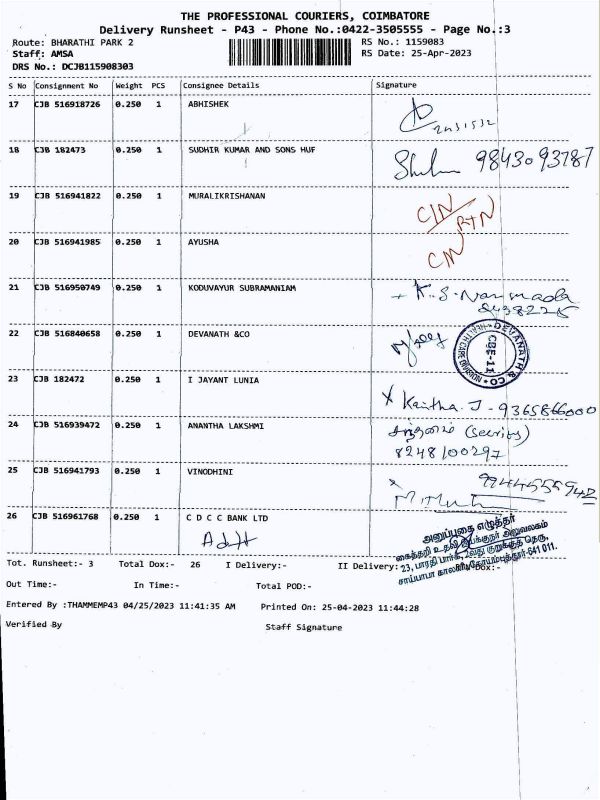 THE PROFESSIONAL COURIERS, COIMBATORE
Delivery Runsheet - P43 - Phone No.:0422-3505555 - Page No.:3
Route: BHARATHI PARK 2 RS No.: 1159083
Staff: AMSA RS Date: 25-Apr-2023
DRS No.: DCJB115908303
S No Consignment No Weight PCS Consignee Details Signature
17 CJB 516918726 0.250 1 ABHISHEK
18 CJB 182473 0.250 1 SUDHIR KUMAR AND SONS HUF
9843093787
19 CJB 516941822 0.250 1 MURALIKRISHANAN
C/N
RTN
20 CJB 516941985 0.250 1 AYUSHA
21 CJB 516950749 0.250 1 KODUVAYUR SUBRAMANIAM
K.S. Narmada
22 CJB 516840658 0.250 1 DEVANATH &CO
DEVANATH & CO
CBE-11
23 CJB 182472 0.250 1 I JAYANT LUNIA
X Kavitha. J - 9365866000
24 CJB 516939472 0.250 1 ANANTHA LAKSHMI
8248100297
25 CJB 516941793 0.250 1 VINODHINI
26 CJB 516961768 0.250 1 C D C C BANK LTD
அனுப்புகை எழுத்தர்
கைத்தறி உதவி இயக்குநர் அலுவலகம்
23, பாரதி பார்க், 2வது குறுக்குத் தெரு,
சாய்பாபா காலனி, கோயம்புத்தூர்-641 011.
Tot. Runsheet:- 3 Total Dox:- 26 I Delivery:- II Delivery:
Out Time:- In Time:- Total POD:-
Entered By :THAMMEMP43 04/25/2023 11:41:35 AM Printed On: 25-04-2023 11:44:28
Verified By Staff Signature